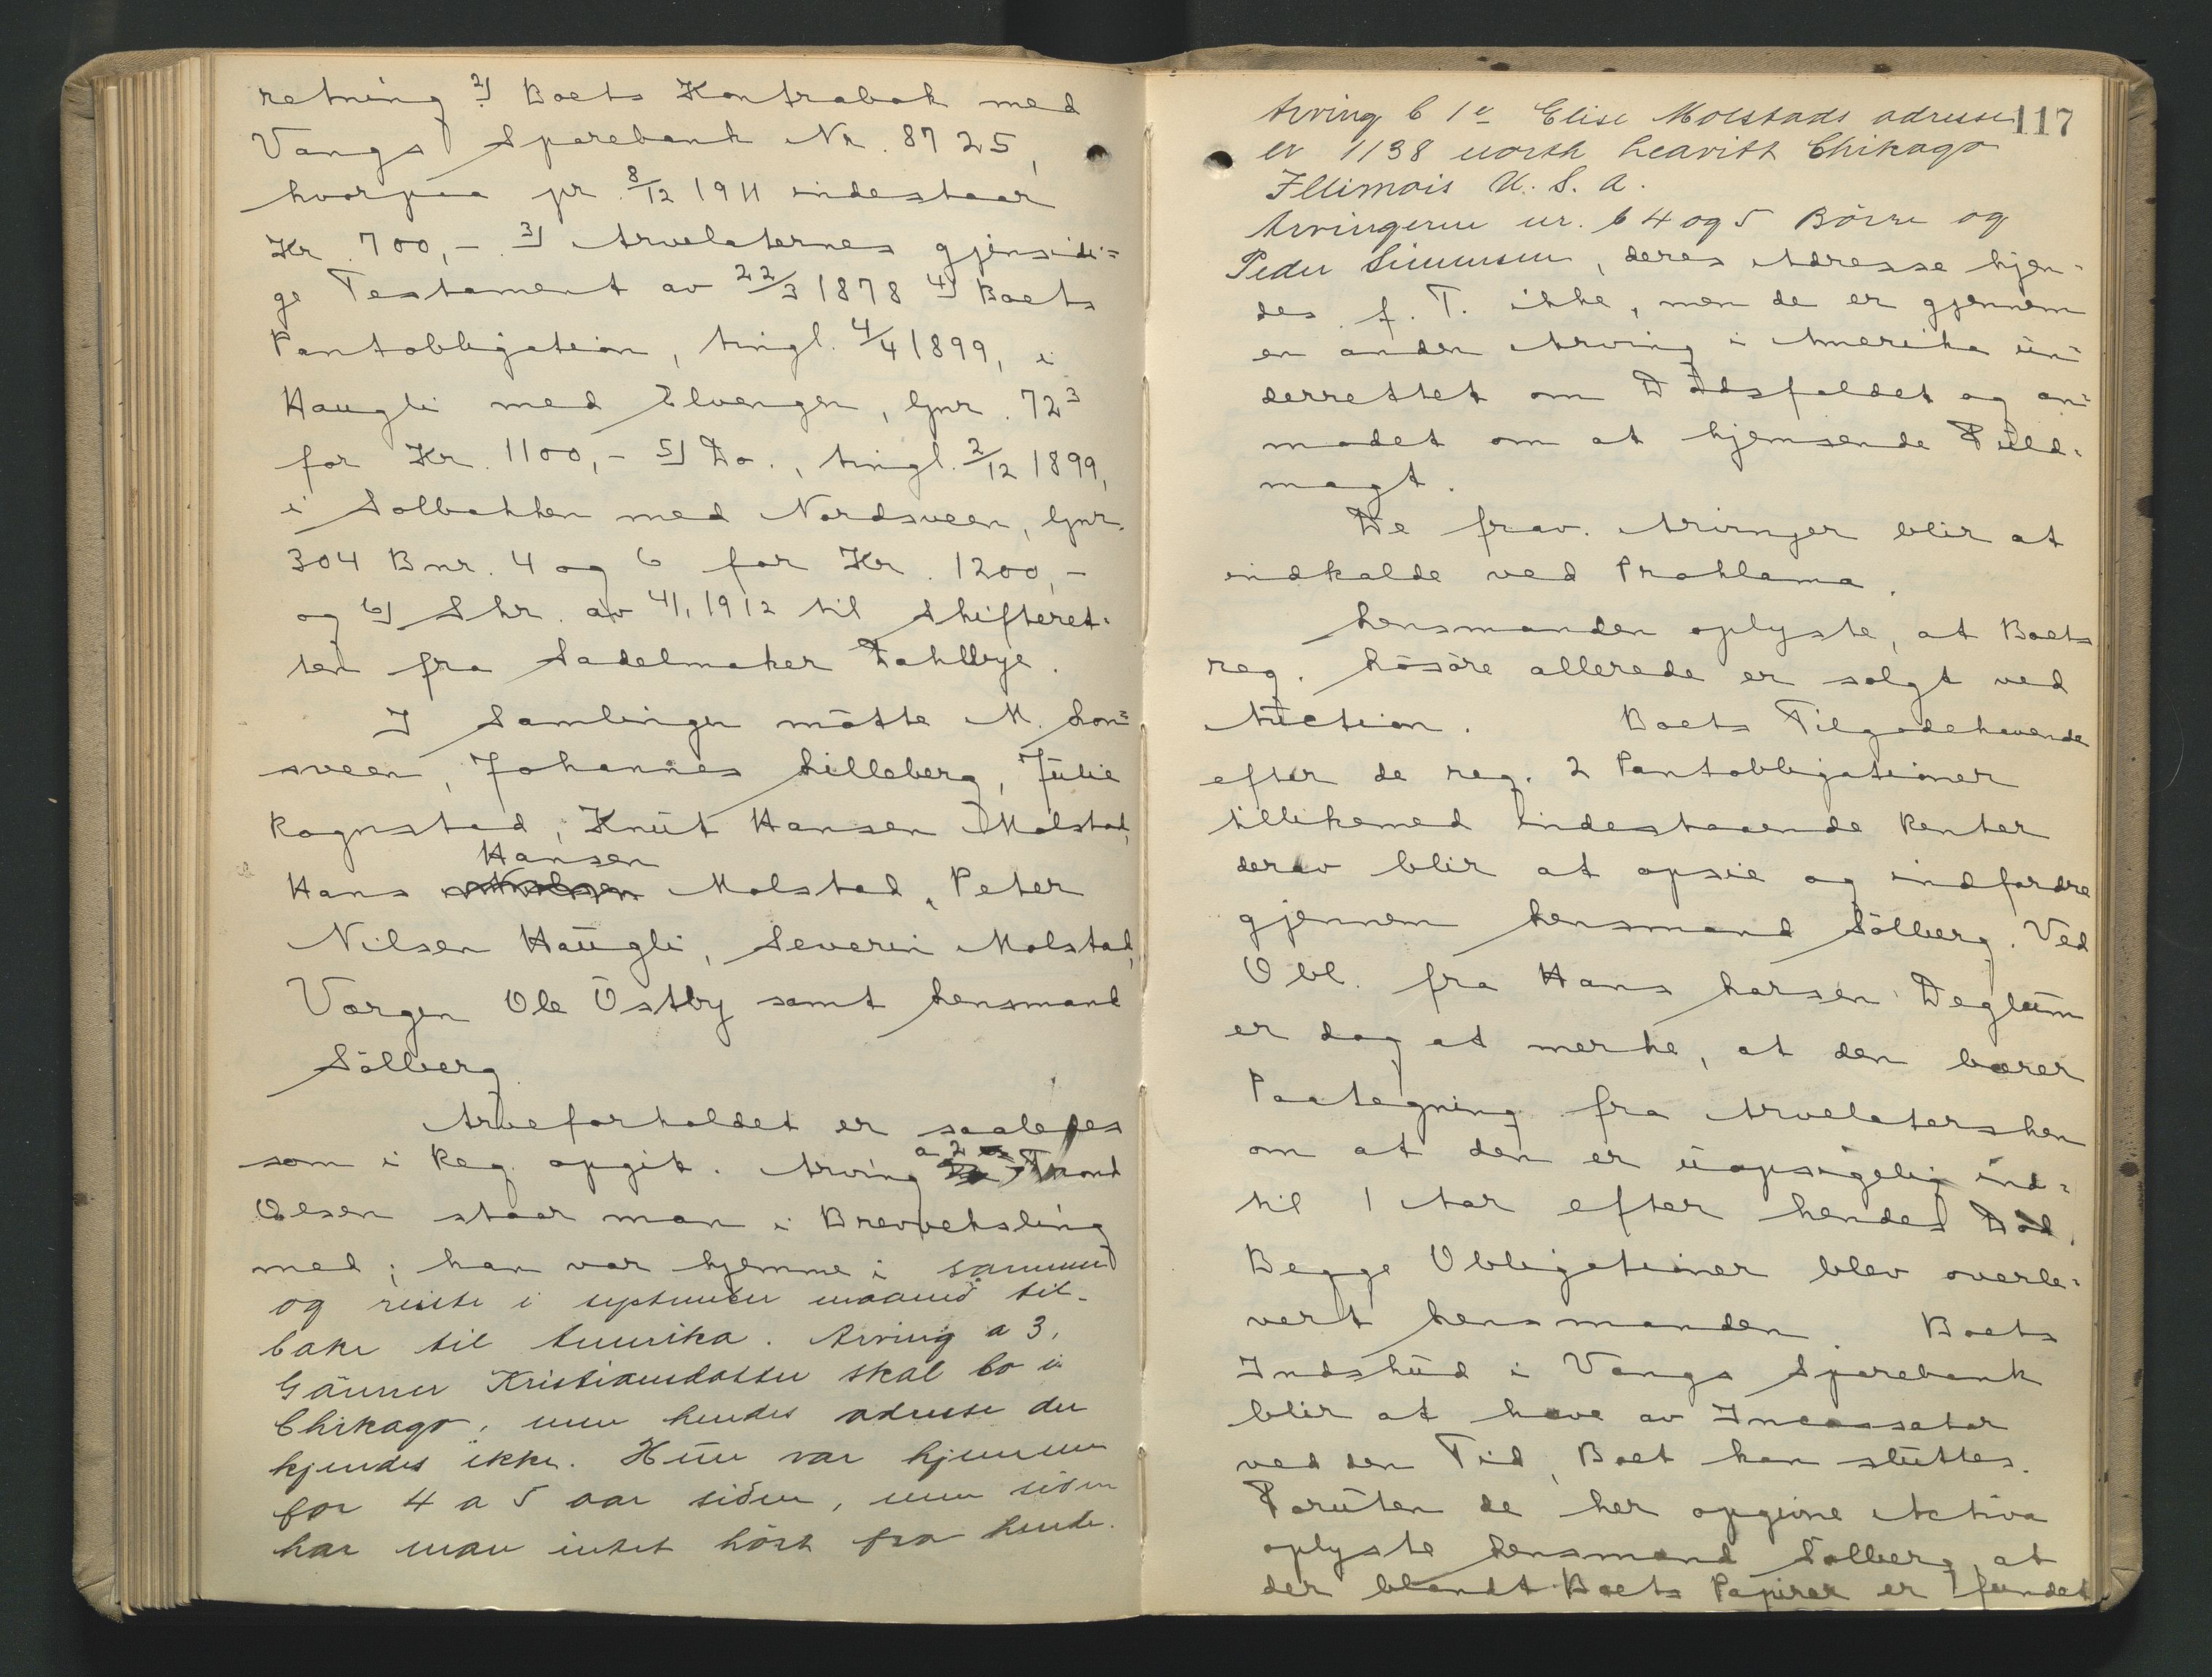 retning 2) Boets Kontrabok med
Vangs Sparebank Nr. 8725,
hvorpaa pr. 8/12 1911 indestaar
Kr. 700,- 3) Arvelaternes gjensidi=
ge Testament av 22/3 1878 4) Boets
Pantobligation, tingl. 4/4 1899, i
Haugli med Elvengen, Gnr. 72³
for Kr. 1100,- 5) Do., tingl. 2/12 1899,
i Solbakken med Nordsveen, Gnr.
304 Bnr. 4 og 6 for Kr. 1200,-
og 6) Skr. av 4/1 1912 til Skifteret-
ten fra Sadelmaker Dahlbye.
I Samlingen møtte M. Lon=
sveen, Johannes Lilleberg, Julie
Rognstad, Knut Hansen Molstad,
Hansen
Hans Molstad, Peter
Nilsen Haugli, Severin Molstad,
Værgen Ole Østby samt Lensmand
Sølberg.
Arveforholdet er saaledes
som i Reg. opgit. Arving a 2 Trond
Olsen staar man i Brevveksling
med; han var hjemme i sommer
og reiste i september maaned til-
bake til Amerika. Arving a 3,
Gunner Kristiansdatter skal bo i
Chikago, men hendes adresse der
kjendes ikke. Hun var hjemme
for 4 a 5 aar siden, men siden
har man intet hört fra hende.
117
Arving b 1 e Elise Molstads adresse
er 1138 north Leavitt Chikago
Illinois U. S. A.
Arvingerne nr. b 4 og 5 Börre og
Peder Simensen, deres Adresse kjen-
des f. T. ikke, men de er gjennem
en anden Arving i Amerika un=
derrettet om Dødsfaldet og an=
modet om at hjemsende Fuld-
magt.
De frav. Arvinger blir at
indkalde ved Proklama.
Lensmanden oplyste, at Boets
reg. Løsøre allerede er solgt ved
Auction. Boets Tilgodehavende
efter de reg. 2 Pantobligationer
tillikemed indestaaende Renter
derav blir at opsie og indfordre
gjennem Lensmand Sølberg. Ved
Obl. fra Hans Larsen Deglum
er dog at merke, at den bærer
Paategning fra Arvelatersken
om at den er uopsigelig ind-
til 1 Aar efter hendes Død.
Begge Obligationer blev overle-
vert Lensmanden. Boets
Indskud i Vangs Sparebank
blir at hæve av Incassator
ved den Tid, Boet kan sluttes.
Foruten de her opgivne Activa
oplyste Lensmand Sølberg, at
der blandt Boets Papirer er fundet